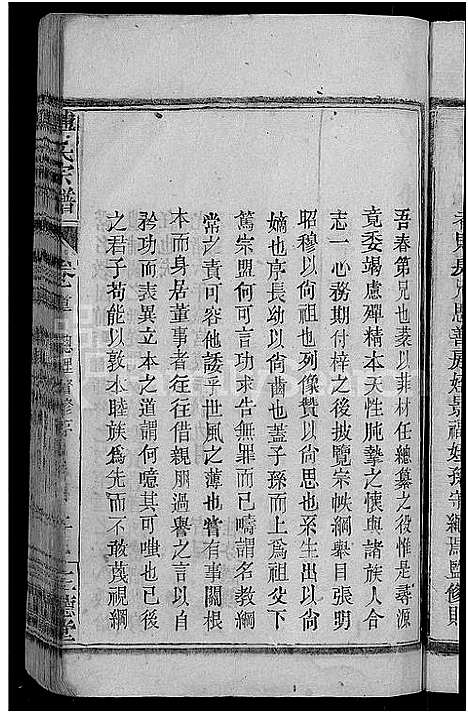 吾春第兄也蒙以菲材任總纂之役惟是尋源
竟委竭慮殫精本天性肫摯之懷與諸族人合
志一心務期付梓之後披覽宗帙綱舉目張明
昭穆以尙祖也列像贊以尙思也系生出以尙
嫡也序長幼以尙齒也蓋子孫而上爲祖父下
篤宗盟何可言功求告無罪而已疇謂名教綱
常之責可容他諉乎世風之薄也嘗有事關根
本而身居董事者往往借親朋過譽之言以自
矜功而表異立本之道謂何噫其可嗤也已後
之君子苟能以敦本睦族爲先而不敢蔑視綱
氏宗譜
三德堂